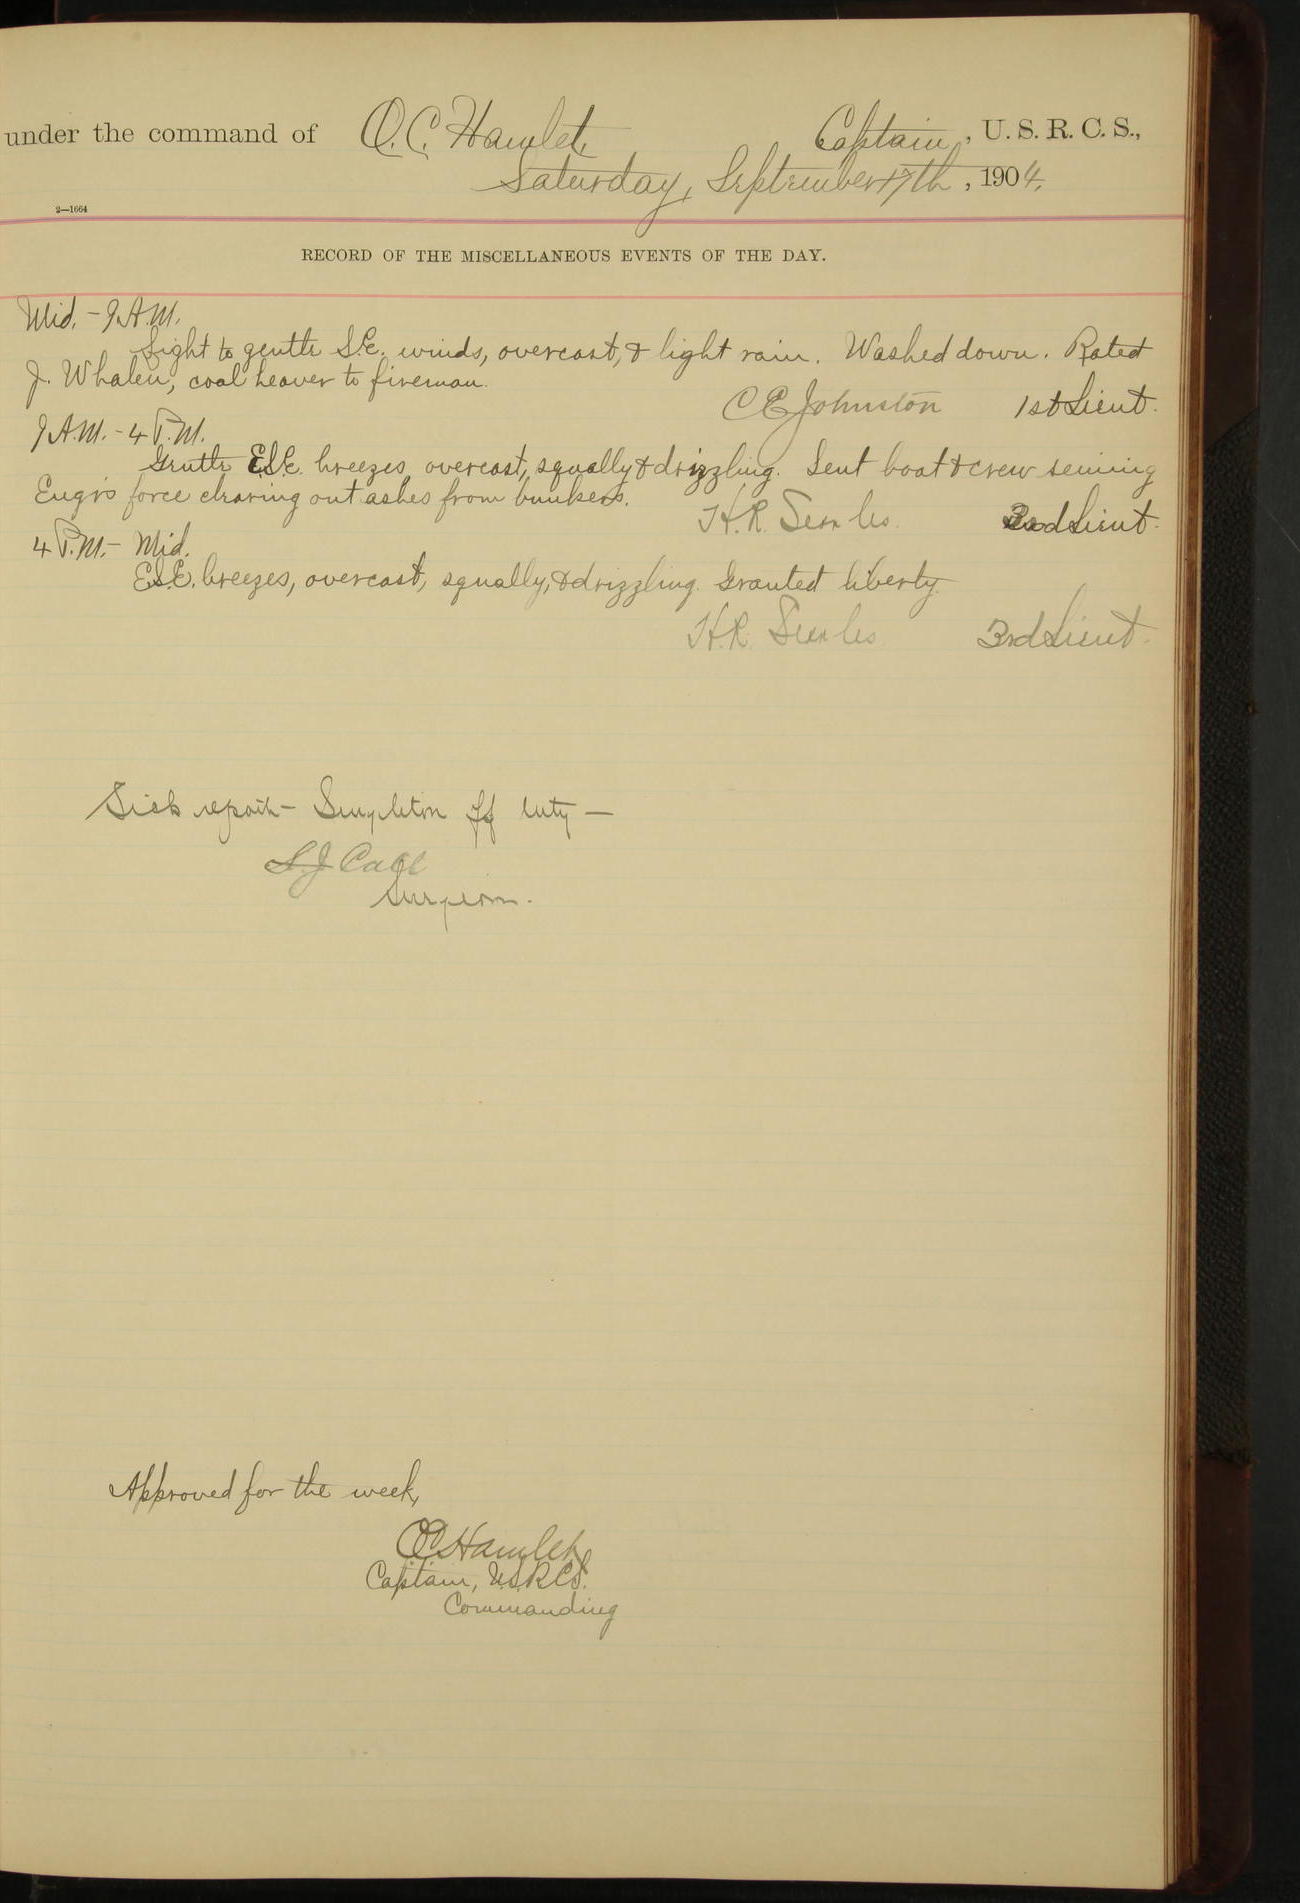 under the command of O. C. Hamlet, Captain, U. S. R. C. S.,
Saturday, September 17th, 1904.
2—1664
RECORD OF THE MISCELLANEOUS EVENTS OF THE DAY.
Mid. - 9 A.M.
Light to gentle S.E. winds, overcast, & light rain. Washed down. Rated
J. Whalen, coal heaver to fireman.
C E Johnston 1st Lieut.
9 A.M. - 4 P.M.
Gentle E.S.E. breezes, overcast, squally & drizzling. Sent boat & crew seining
Engr's force clearing out ashes from bunkers.
H. R. Searles. 3rd Lieut.
4 P.M. - Mid.
E.S.E. breezes, overcast, squally, & drizzling. Granted liberty.
H. R. Searles. 3rd Lieut.
Sick report - Singleton off duty —
S. J Call
Surgeon.
Approved for the week,
O C Hamlet
Captain, U.S.R.C.S.
Commanding